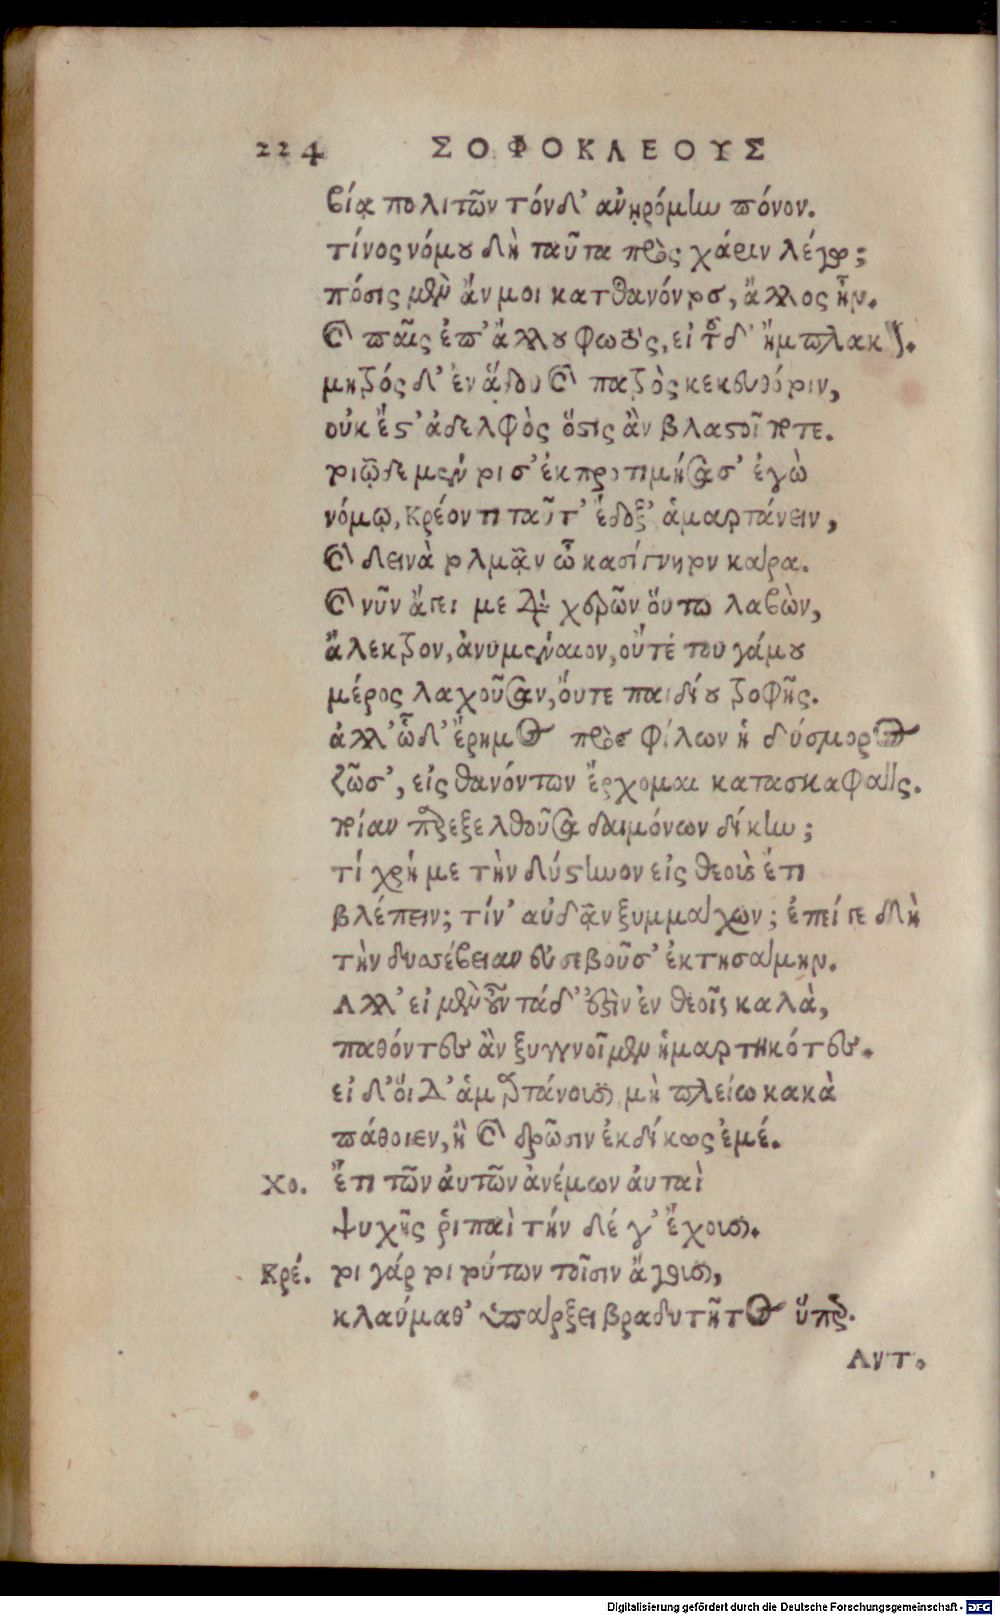 224 ΣΟΦΟΚΛΕΟΥΣ
βίᾳ πολιτῶν τόνδ' ἀνῃρόμην πόνον.
τίνος νόμου δὴ ταῦτα πρὸς χάριν λέγω;
πόσις μὲν ἄν μοι κατθανόντος, ἄλλος ἦν.
καὶ παῖς ἀπ' ἄλλου φωτὸς, εἰ τοῦδ' ἤμπλακον.
μητρός δ' ἐν ᾅδου καὶ πατρὸς κεκευθότοιν,
οὐκ ἔστ' ἀδελφὸς ὅστις ἂν βλαστοῖ ποτε.
τοιῷδε μέντοι σ' ἐκπροτιμήσασ' ἐγὼ
νόμῳ, Κρέοντι ταῦτ' ἔδοξ' ἁμαρτάνειν,
καὶ δεινὰ τολμᾷν ὦ κασίγνητον κάρα.
καὶ νῦν ἄγει με διὰ χερῶν οὕτω λαβὼν,
ἄλεκτρον, ἀνυμέναιον, οὔτέ του γάμου
μέρος λαχοῦσαν, ὄυτε παιδίου τροφῆς.
ἀλλ' ὧδ' ἔρημος πρὸς φίλων ἡ δύσμορος
ζῶσ', εἰς θανόντων ἔρχομαι κατασκαφάς.
ποίαν παρεξελθοῦσα δαιμόνων δίκην;
τί χρή με τὴν δύστηνον εἰς θεοὺς ἔτι
βλέπειν; τίν' αὐδᾷν ξυμμάχων; ἐπεί γε δὴ
τὴν δυσσέβειαν εὐσεβοῦσ' ἐκτησάμην.
Ἀλλ' εἰ μὲν οὖν τάδ' ἐστὶν ἐν θεοῖς καλὰ,
παθόντες ἂν ξυγγνοῖμεν ἡμαρτηκότες.
εἰ δ' ὅιδ' ἁμαρτάνουσι, μὴ πλείω κακὰ
πάθοιεν, ἢ καὶ δρῶσιν ἐκδίκως ἐμέ.
Χο. ἔτι τῶν ἀυτῶν ἀνέμων ἀυταὶ
ψυχῆς ῥιπαὶ τήν δέ γ' ἔχουσι.
Κρέ. τοι γάρ τοι τούτων τοῖσιν ἄγουσι,
κλαύμαθ' ὑπάρξει βραδυτῆτος ὕπερ.
Αντ.
Digitalisierung gefördert durch die Deutsche Forschungsgemeinschaft - DFG